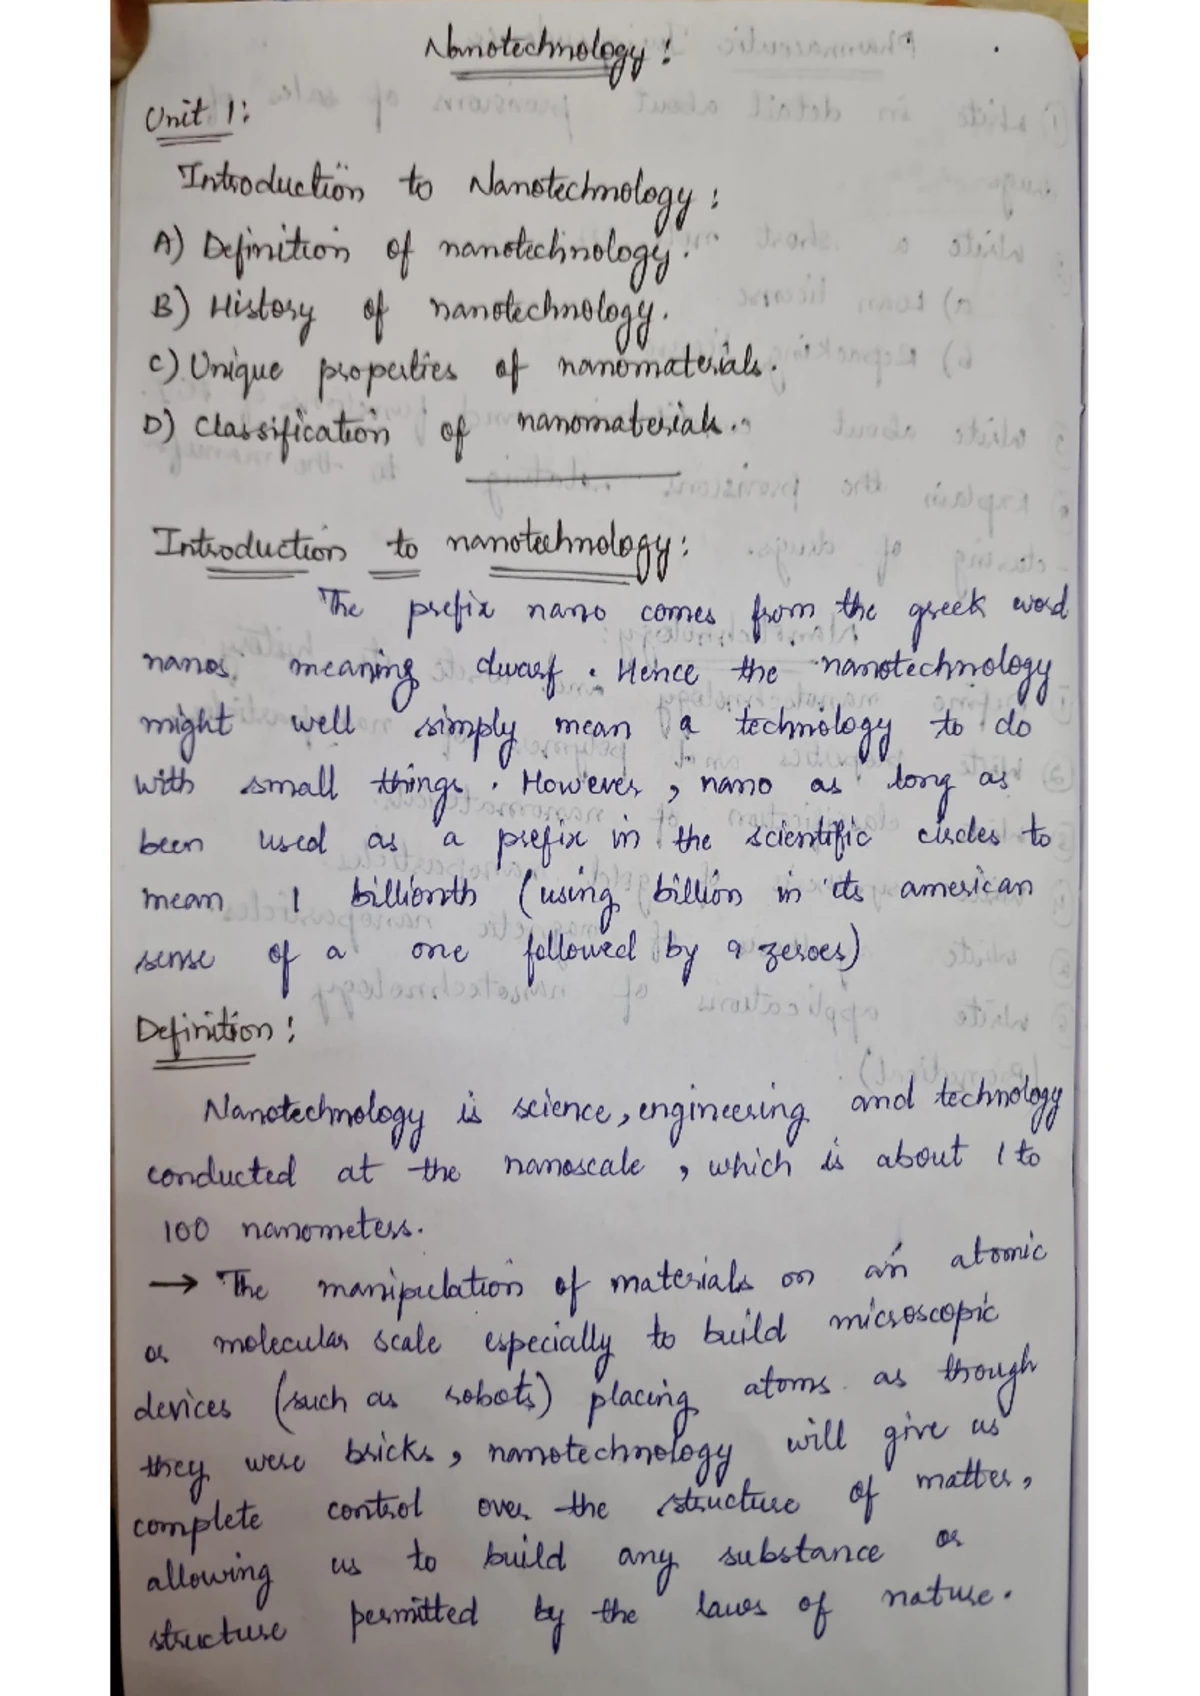 Nanotechnology :
Unit 1:
Introduction to Nanotechnology :
A) Definition of nanotechnology.
B) History of nanotechnology.
C) Unique properties of nanomaterials.
D) Classification of nanomaterials.
Introduction to nanotechnology:
The prefix nano comes from the greek word
nanos, meaning dwarf. Hence the nanotechnology
might well simply mean a technology to do
with small things. However, nano as long as
been used as a prefix in the scientific circles to
mean 1 billionth (using billion in its american
sense of a one followed by 9 zeroes)
Definition :
Nanotechnology is science, engineering and technology
conducted at the nanoscale, which is about 1 to
100 nanometers.
→ The manipulation of materials on an atomic
or molecular scale especially to build microscopic
devices (such as robots) placing atoms as though
they were bricks, nanotechnology will give us
complete control over the structure of matter,
allowing us to build any substance or
structure permitted by the laws of nature.